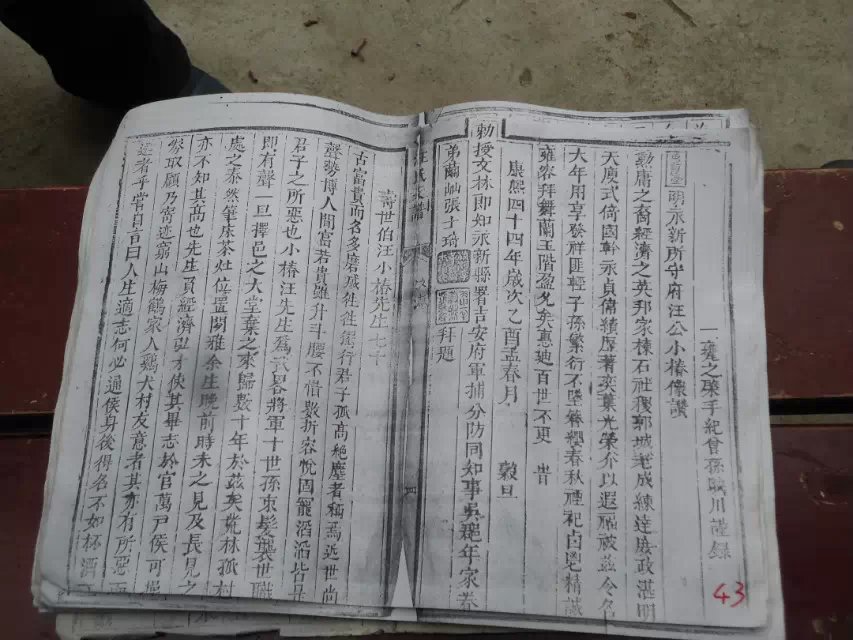 一雍之琹手紀曾孫
川謹錄
明永新所守府汪公小椿像讚
勳庸之裔經濟之英邦家棟石社稷郭城老成練達廢政湛明
天慶式倚國幹永貞偉績厚著奕葉光榮介以遐福被茲令名
大年用享發祥匪輕子孫繁衍不墜簪纓春秋禋祀卣鬯精誠
雍容拜舞蘭玉階盈允矣惠迪百世不更 旹
康熙四十四年歲次乙酉孟春月 穀旦
勅授文林郎知永新縣署吉安府軍捕分防同知事
年家眷
弟蘭
張士琦
拜題
壽世伯汪小椿先生七十
古富貴而名多磨滅徃徃
行君子孤高絕塵者稱焉近世尚
聲勢博人間富若貴雖升斗腰不惜數折容悅固寵滔滔皆是
君子之所惡也小椿汪先生為武畧將軍十世孫束髮襲世職
即有聲一旦擇邑之大堂棄之來歸數十年於茲矣荒林孤村
處之泰然筆床茶灶位置閒雅余生晚前時未之見及長見之
亦不知其高也先生負經濟弘才使其畢志於官萬戶侯可
取顧乃寄迹窮山梅鶴家人雞犬村友意者其亦有所惡
者乎常自言曰人生適志何必通侯身後得名不如杯酒
43